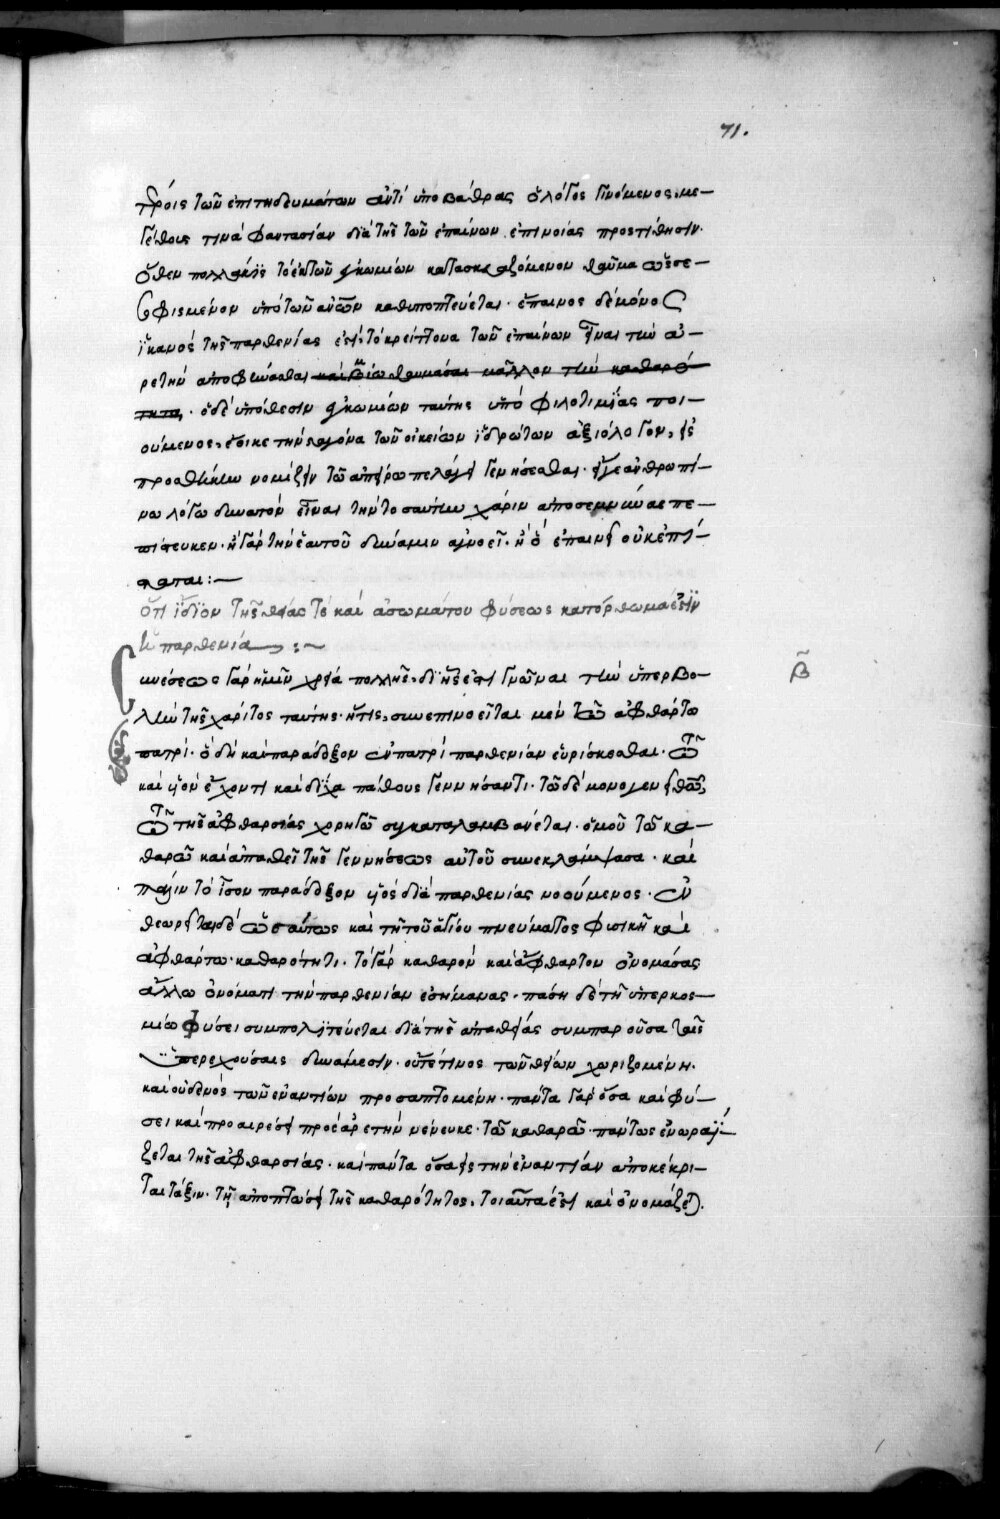 71.
τέροις τῶν ἐπιτηδευμάτων ἀντὶ ὑποβάθρας ὁ λόγος γινόμενος, με-
γέθους τινὰ φαντασίαν διὰ τῆς τῶν ἐπαίνων ἐπινοίας προστίθησιν.
ὅθεν πολλάκις τὸ ἐκ τῶν ἐγκωμίων κατασκευαζόμενον θαῦμα ὡς σε-
σοφισμένον ὑπὸ τῶν αὐτῶν καθυποπτεύεται. ἔπαινος δὲ μόνος
ἱκανὸς τῆς παρθενίας ἐστὶ, τὸ κρείττονα τῶν ἐπαίνων εἶναι τὴν ἀ-
ρετὴν ἀποφήνασθαι καὶ βίῳ θαυμάσαι μᾶλλον τὴν καθαρό-
τητα. ὁ δὲ ὑπόθεσιν ἐγκωμίων ταύτης ὑπὸ φιλοτιμίας ποι-
ούμενος, ἔοικε τὴν σταγόνα τῶν οἰκείων ἱδρώτων ἀξιόλογον, εἰς
προσθήκην νομίζειν τῷ ἀπείρῳ πελάγει γενήσεσθαι. εἴγε ἀνθρωπί-
νῳ λόγῳ δυνατὸν εἶναι τὴν τοσαύτην χάριν ἀποσεμνῦναι πε-
πίστευκεν. ἢ γὰρ τὴν ἑαυτοῦ δύναμιν ἀγνοεῖ. ἢ ὃ ἐπαινεῖ οὐκ ἐπί-
σταται:—
ὅτι ἴδιον τῆς θείας τε καὶ ἀσωμάτου φύσεως κατόρθωμα ἐστὶν
ἡ παρθενία:~
Συνέσεως γὰρ ἡμῖν χρεία πολλῆς, δι' ἧς ἔστι γνῶναι τὴν ὑπερβο-
λὴν τῆς χάριτος ταύτης. ἥτις συνεπινοεῖται μὲν τῷ ἀφθάρτῳ
πατρί. ὃ δὴ καὶ παράδοξον ἐν πατρὶ παρθενίαν εὑρίσκεσθαι. τῷ
καὶ υἱὸν ἔχοντι καὶ δίχα πάθους γεννήσαντι. τῷ δὲ μονογενεῖ θεῷ,
τῷ τῆς ἀφθαρσίας χορηγῷ συγκαταλαμβάνεται. ὁμοῦ τῷ κα-
θαρῷ καὶ ἀπαθεῖ τῆς γεννήσεως αὐτοῦ συνεκλάμψασα. καὶ
πάλιν τὸ ἴσον παράδοξον υἱὸς διὰ παρθενίας νοούμενος. ἐν
θεωρεῖται δὲ ὡσαύτως καὶ τῇ τοῦ ἁγίου πνεύματος φυσικῇ καὶ
ἀφθάρτῳ καθαρότητι. τὸ γὰρ καθαρὸν καὶ ἄφθαρτον ὀνομάσας
ἄλλῳ ὀνόματι τὴν παρθενίαν ἐσήμανας. πάσῃ δὲ τῇ ὑπερκοσ-
μίῳ φύσει συμπολιτεύεται διὰ τῆς ἀπαθείας συμπαροῦσα ταῖς
ὑπερεχούσαις δυνάμεσιν. οὔτέ τινος τῶν θείων χωριζομένη.
καὶ οὐδενὸς τῶν ἐναντίων προσαπτομένη. πάντα γὰρ ὅσα καὶ φύ-
σει καὶ προαιρέσει πρὸς ἀρετὴν νένευκε. τῷ καθαρῷ πάντως ἐνωραΐ-
ζεται τῆς ἀφθαρσίας. καὶ πάντα ὅσα εἰς τὴν ἐναντίαν ἀποκέκρι-
ται τάξιν. τῇ ἀποπτώσει τῆς καθαρότητος, τοιαῦτα ἐστὶ καὶ ὀνομάζεται.
β